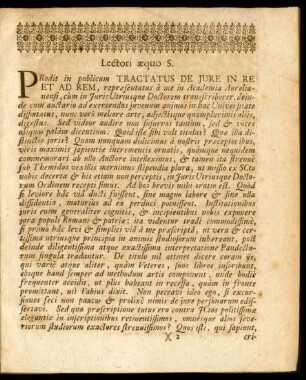 Lectori æquo S.
PRodit in publicum TRACTATUS DE JURE IN RE
ET AD REM, repræsentatus à me in Academia Aurelia-
nensi, cùm in Juris Utriusque Doctorem transscriberer, dein-
de cum auctario ad exercendos juvenum animos in hac Universitate
disputatus, nunc verò meliore arte, adjectisque quamplurimis aliis,
digestus. Sed videor audire mox insurrens tantùm, sed & voces
aliquas palàm dicentium: Quid iste sibi vult titulus? Quæ illa di-
stinctio juris? Quam nunquam didicimus à nostris præceptoribus,
viris maximis sapientiæ incrementis ornatis, quâmque nequidem
commemorari ab ullo Auctore intelleximus, & tamen ita strenuè
sub Themidos vexillis meruimus stipendia plura, ut nisso ex SCto
nobis decerta & his etiam non perceptis, in Juris Utriusque Docto-
rum Ordinem recepti simus. Ad hos brevis mihi oratio est. Quod
si leviora hæc vid ducti fuissent, sine magno labore & sine ulla
diffidentia, maturius ad ea perduci potuissent. Institutionibus
juris enim generaliter cognitis, & incipientibus nobis exponere
jura populi Romani & patria: ita videntur tradi commodissimè,
si primò hæc levi & simplici viâ à me præscriptâ, ut vera & cer-
tissimâ utriusque principia in animis studiosorum inhæreant, post
deinde diligentissimâ atque exactissimâ interpretatione Pandecta-
rum singula tradantur. De titulo nil attinet dicere coram iis,
qui variè atque aliter, quàm Veteres, suos libros inscribunt,
eosque haud semper ad methodum artis componunt, unde bodie
frequenter accidit, ut plus habeant in recessu, quàm in fronte
promittant, uti Fabius dixit. Non peccavi ideo ego, si excur-
siones feci non paucas & prolixè nimis de jure personarum edis-
sertavi. Sed qua præscriptione tutus ero contra JCtos politissimæ
elegantiæ in inscriptionibus retinentissimos, omnisque alios seve-
riorum studiorum exactores strenuissimos? Quos isti, qui sapiunt,
)( 2 cri-